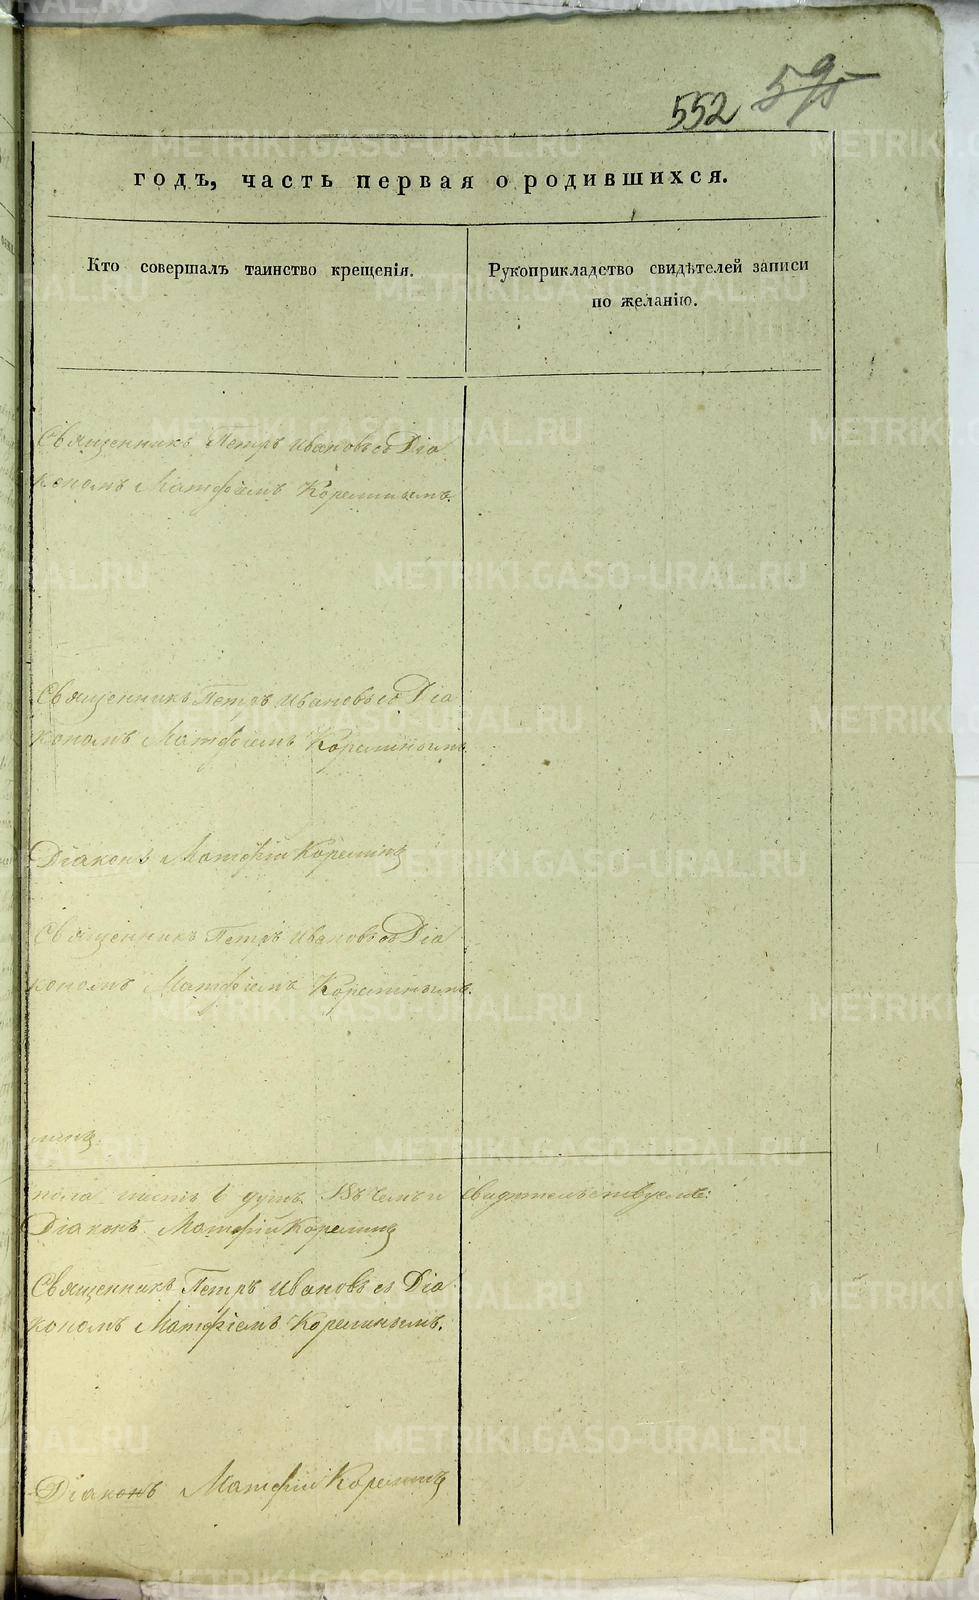 552 595
годъ, часть первая о родившихся.
Кто совершалъ таинство крещенія.
Рукоприкладство свидѣтелей записи
по желанію.
Священникъ Петръ Ивановъ съ Діа
кономъ Матфіемъ Корелинымъ.
Священникъ Петръ Ивановъ съ Діа
кономъ Матфіемъ Корелинымъ
Діаконъ Матфій Корелинъ
Священникъ Петръ Ивановъ съ Діа
кономъ Матфіемъ Корелинымъ.
линъ
пола шесть 6 душъ. Въ чемъ и свидѣтельствуемъ:
Діаконъ Матфій Корелинъ
Священникъ Петръ Ивановъ съ Діа
кономъ Матфіемъ Корелинымъ.
Діаконъ Матфій Корелинъ
METRIKI.GASO-URAL.RU